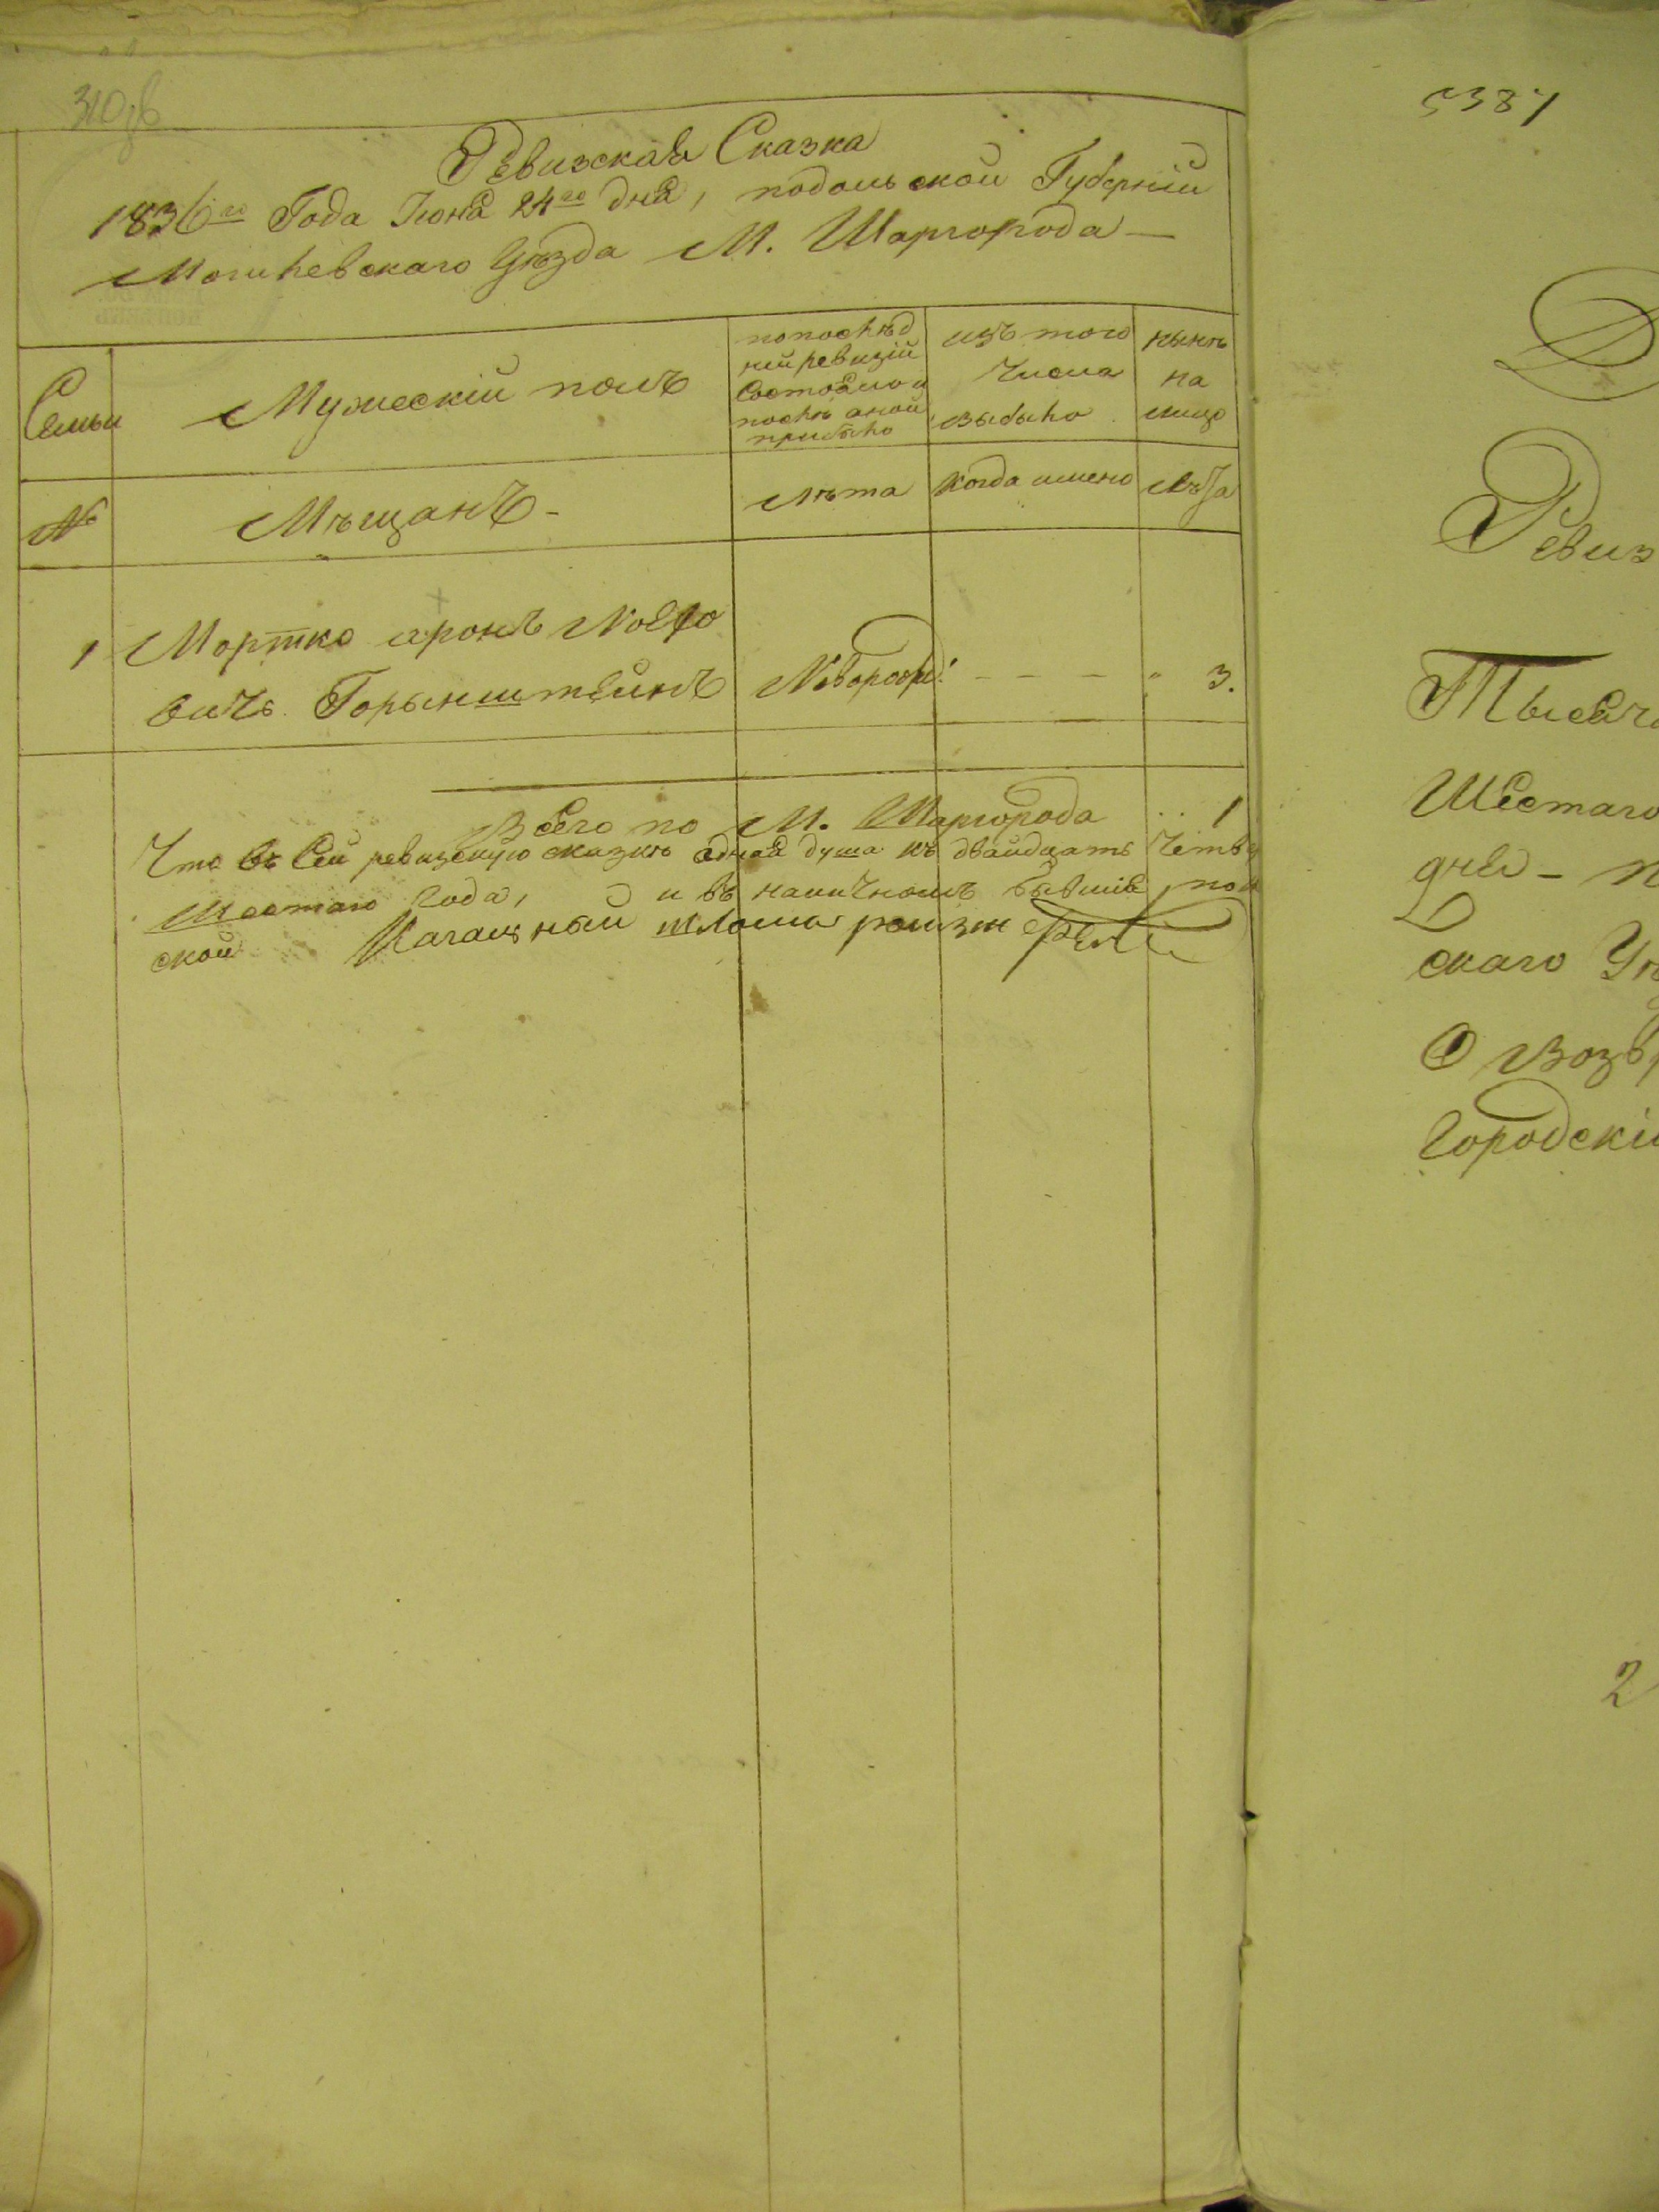 310об
Ревизская Сказка
1836го Года Іюня 24го дня, подольской Губерніи
Могилевскаго Уѣзда М. Шаргорода —
Семьи
Мужескій полъ
попослѣд
ней ревизіи
Состояло и
послѣ оной
прибыло
изъ того
Числа
выбыло
нынѣ
на
лицо
№
Мѣщанъ -
лѣта
когда имено
лѣта
1 Мортко аронъ
вичъ. Горынштейнъ Новорожд: - - - " 3.
Всего по М. Шаргорода .. 1
Что въ Сей ревизскую сказкѣ одная душа къ двайдцать Четве
шестаго года, и въ наличномъ бывшіе, по
ской Кагальный шлома
5387
Ревиз
Тысяч
Шестаго
дня - п
скаго Уѣ
О возвр
Городскі
2